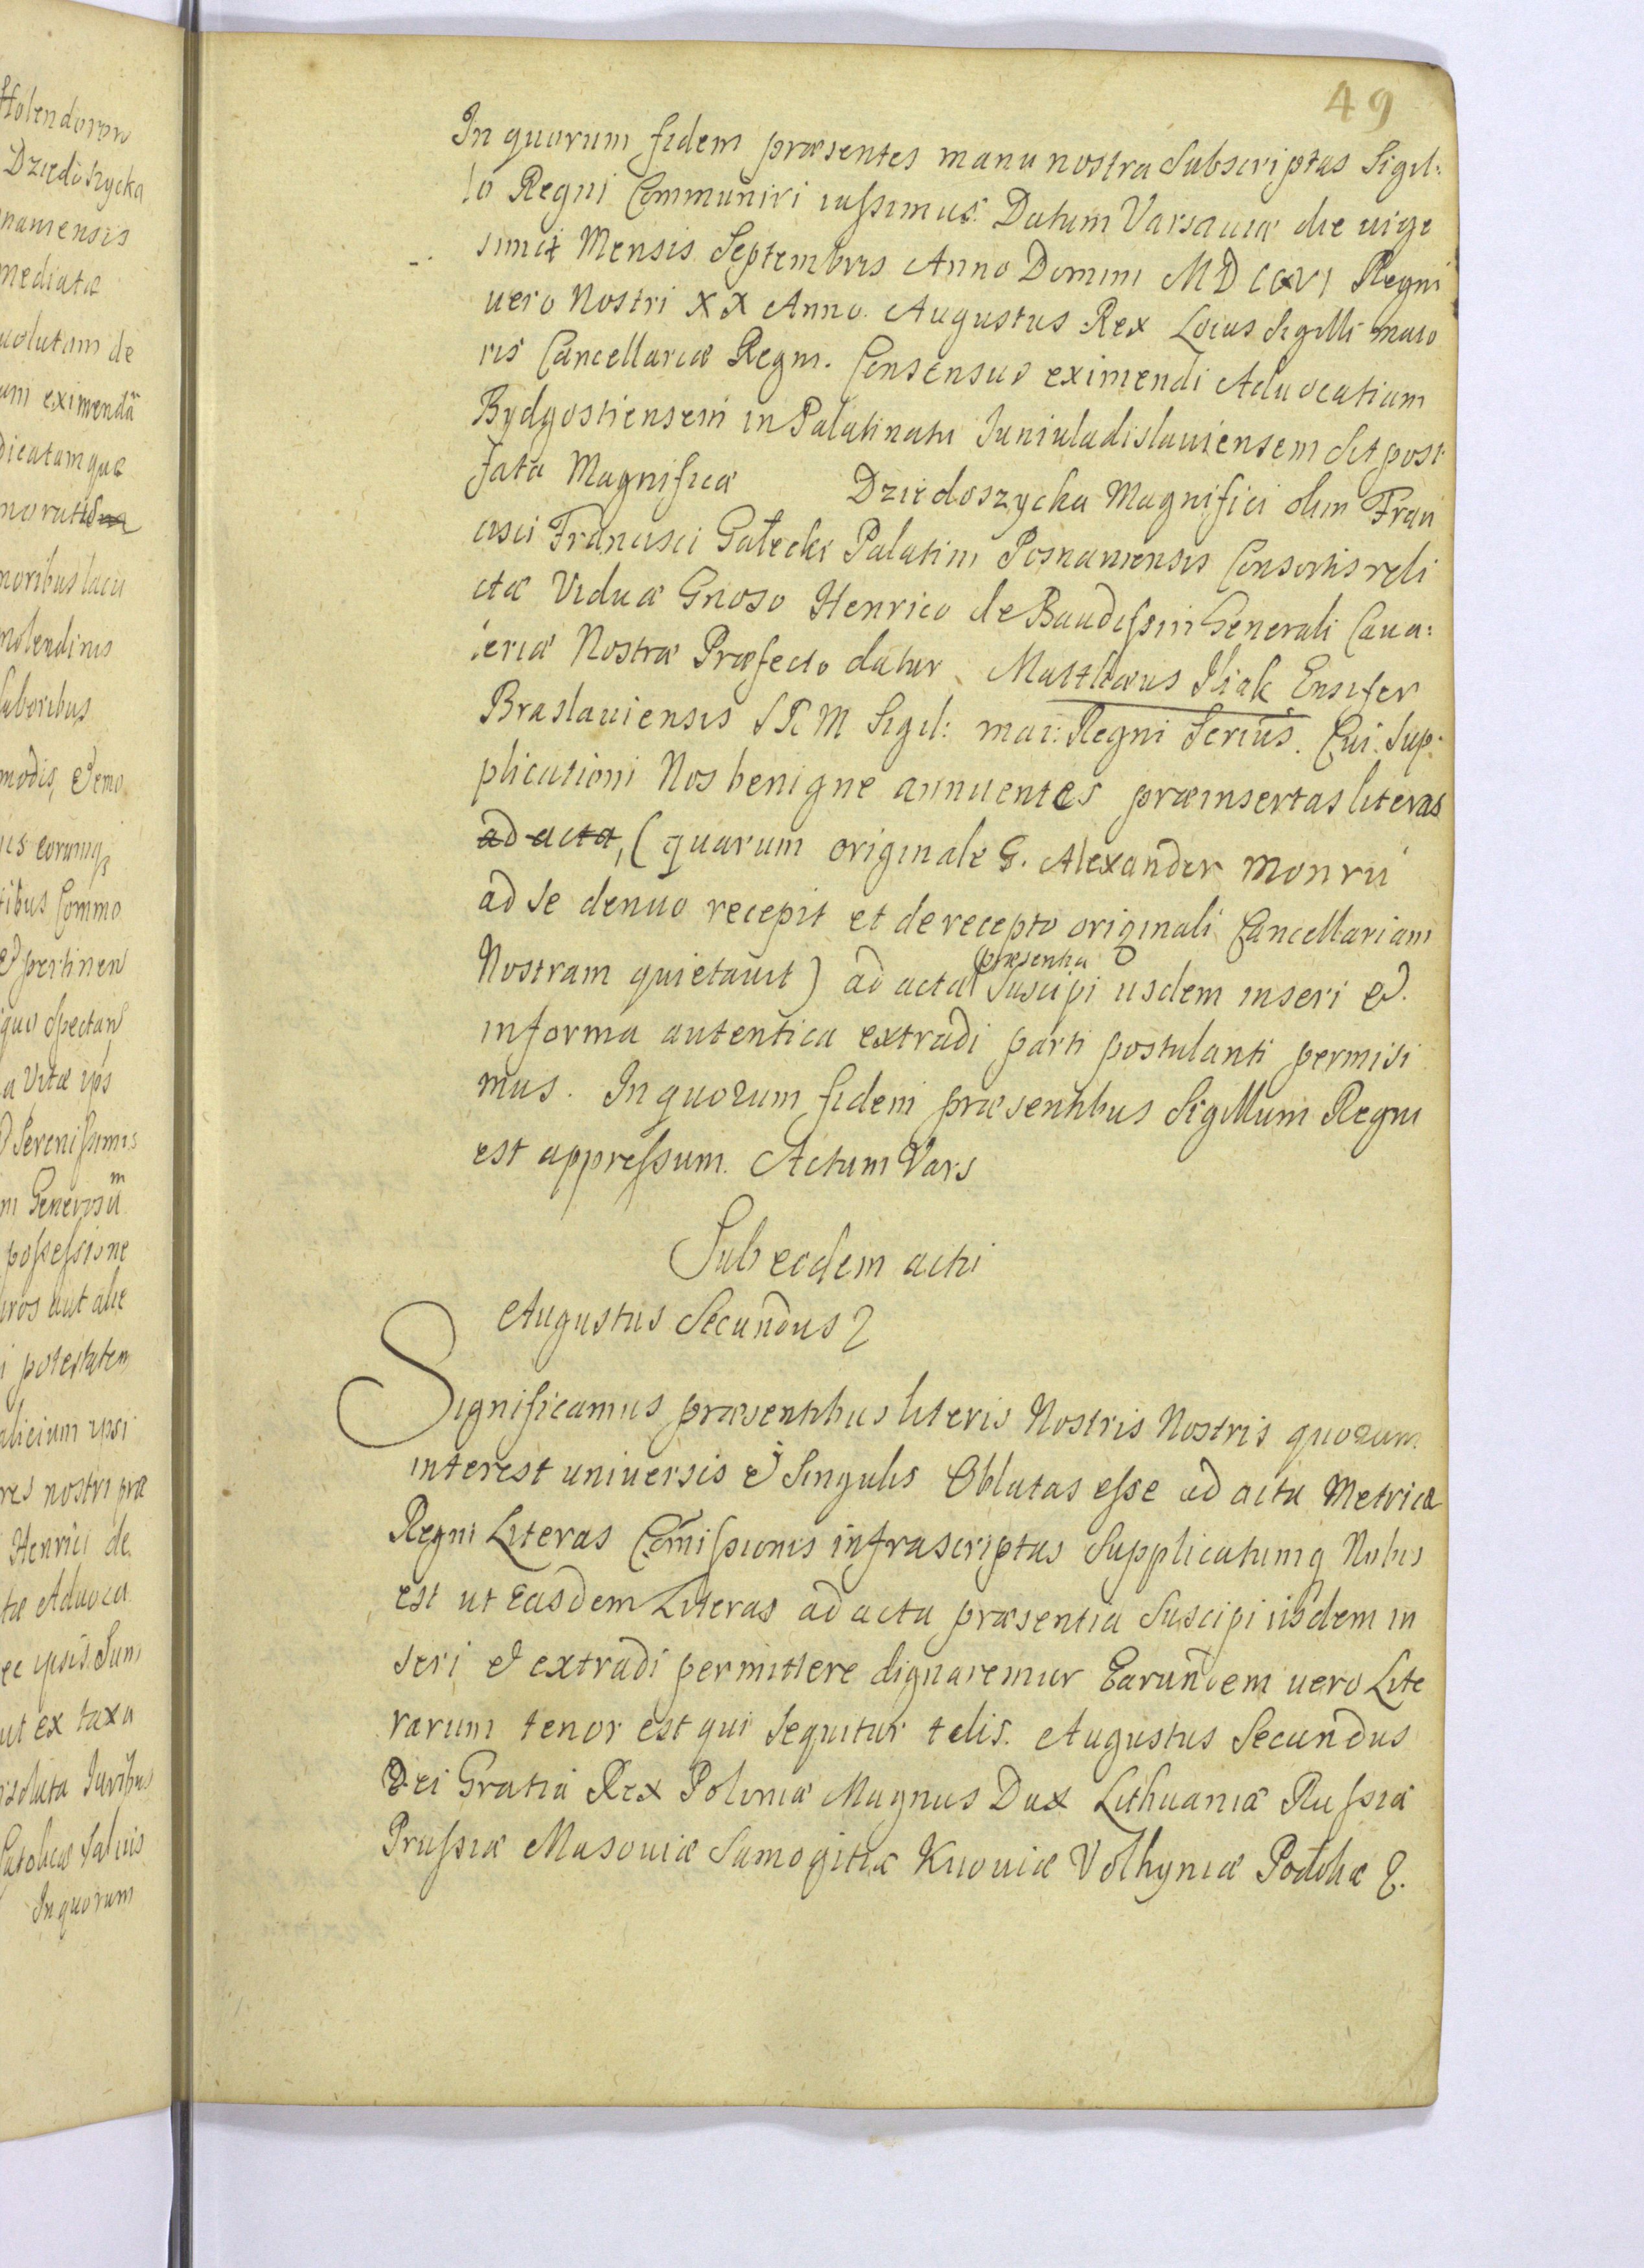 Holendorom
Dziedoszycka
naniensis
mediatæ
uolutam de
am eximendã
dicatam que
norat
noribus lacu
molendinis
laboribus
modis, & emo
iis eorumq
tibus Commo
& pertinen
quo spectan
a Vitæ ips
& Serenissimis
m Generosũ m
possessione
uros aut alie
i potestatem
alicium ipsi
res nostri præ
Henrici de
tæ Aduoca
ec ipsis Sum
ut ex taxa
isoluta Iuribus
Catolicæ Saluis
In quorum
49
In quorum fidem præsentes manu nostra Subscriptas Sigil:
lo Regni Communiri iussimus. Datum Varsauiæ die uige
sima Mensis Septembris Anno Domini MDCCXVI Regni
uero Nostri XX Anno. Augustus Rex Locus Sigilli maio
ris Cancellariæ Regni. Consensus eximendi Aduocatiam
Bydgostiensem in Palatinatu Iuniuladislauiensem Sit post
fata Magnificæ Dziedoszycka Magnifici olim Fran
cisci Francisci Gałecki Palatini Posnaniensis Consortis reli
ctæ Viduæ Gnoso Henrico de Baudissin Generali Caua:
leriæ Nostræ Præfecto datur Matthæus Iliak Ensifer
Braslauiensis SRM Sigil: mai: Regni Serius. Cui Sup:
plicationi Nos benigne annuentes præinsertas literas
ad acta, (quarum originale G. Alexander Monrii
ad se denuo recepit et de recepto originali Cancellariam
Nostram quietauit) ad acta præsentia Suscipi iisdem inseri &
in forma autentica extradi parti postulanti permisi
mus. In quorum fidem præsentibus Sigillum Regni
est appressum. Actum Vars
Sub eodem actu
Augustus Secundus &
Significamus præsentibus literis Nostris Nostris quorum
interest uniuersis & Singulis Oblatas esse ad acta Metricæ
Regni Literas Comissionis infrascriptas Supplicatumq Nobis
est ut Easdem Literas ad acta præsentia Suscipi iisdem in
seri & extradi permittere dignaremur Earundem uero Lite
rarum tenor est qui sequitur telis. Augustus Secundus
Dei Gratia Rex Poloniæ Magnus Dux Lithuaniæ Russiæ
Prussiæ Masouiæ Samogitiæ Kiiouiæ Volhyniæ Podoliæ &.